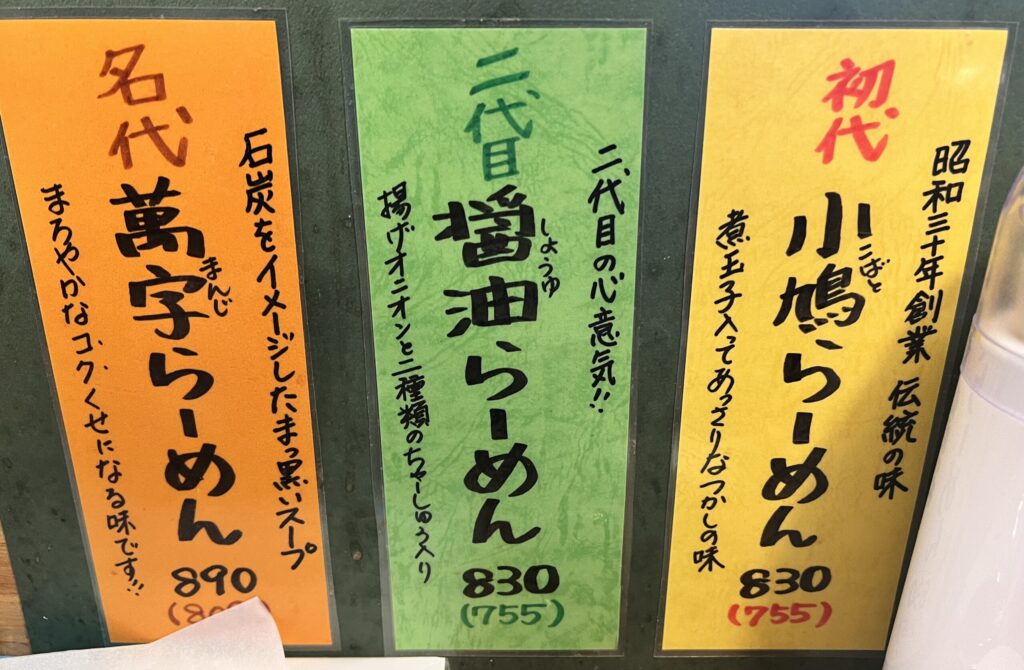 初代
昭和三十年創業 伝統の味
小鳩らーめん
こばと
煮玉子入ってあっさりなつかしの味
830
(755)
二代目
二代目の心意気!!
醤油らーめん
しょうゆ
揚げオニオンと二種類のちゃーしゅう入り
830
(755)
名代
石炭をイメージしたまっ黒いスープ
萬字らーめん
まんじ
まろやかなコク、くせになる味です!!
890